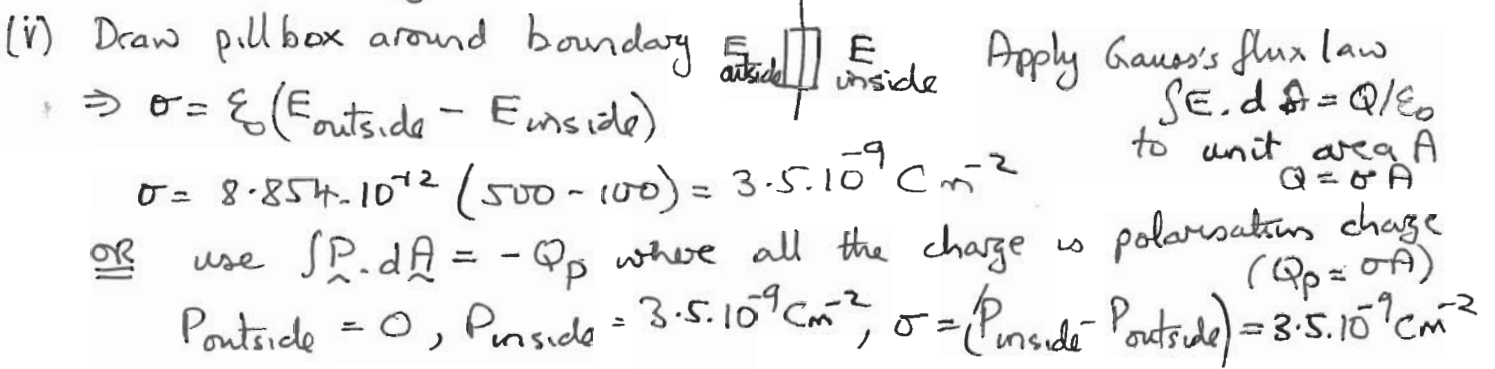 (v) Draw pillbox around boundary E outside E inside Apply Gauss's flux law
⇒ σ = ε₀(E outside - E inside) ∫E.dA = Q/ε₀
to unit area A
σ = 8.854.10⁻¹² (500 - 100) = 3.5.10⁻⁹ C m⁻² Q = σA
OR use ∫P.dA = - Qp where all the charge is polarisation charge
(Qp = σA)
Poutside = 0, Pinside = 3.5.10⁻⁹ Cm⁻², σ = (Pinside - Poutside) = 3.5.10⁻⁹ Cm⁻²